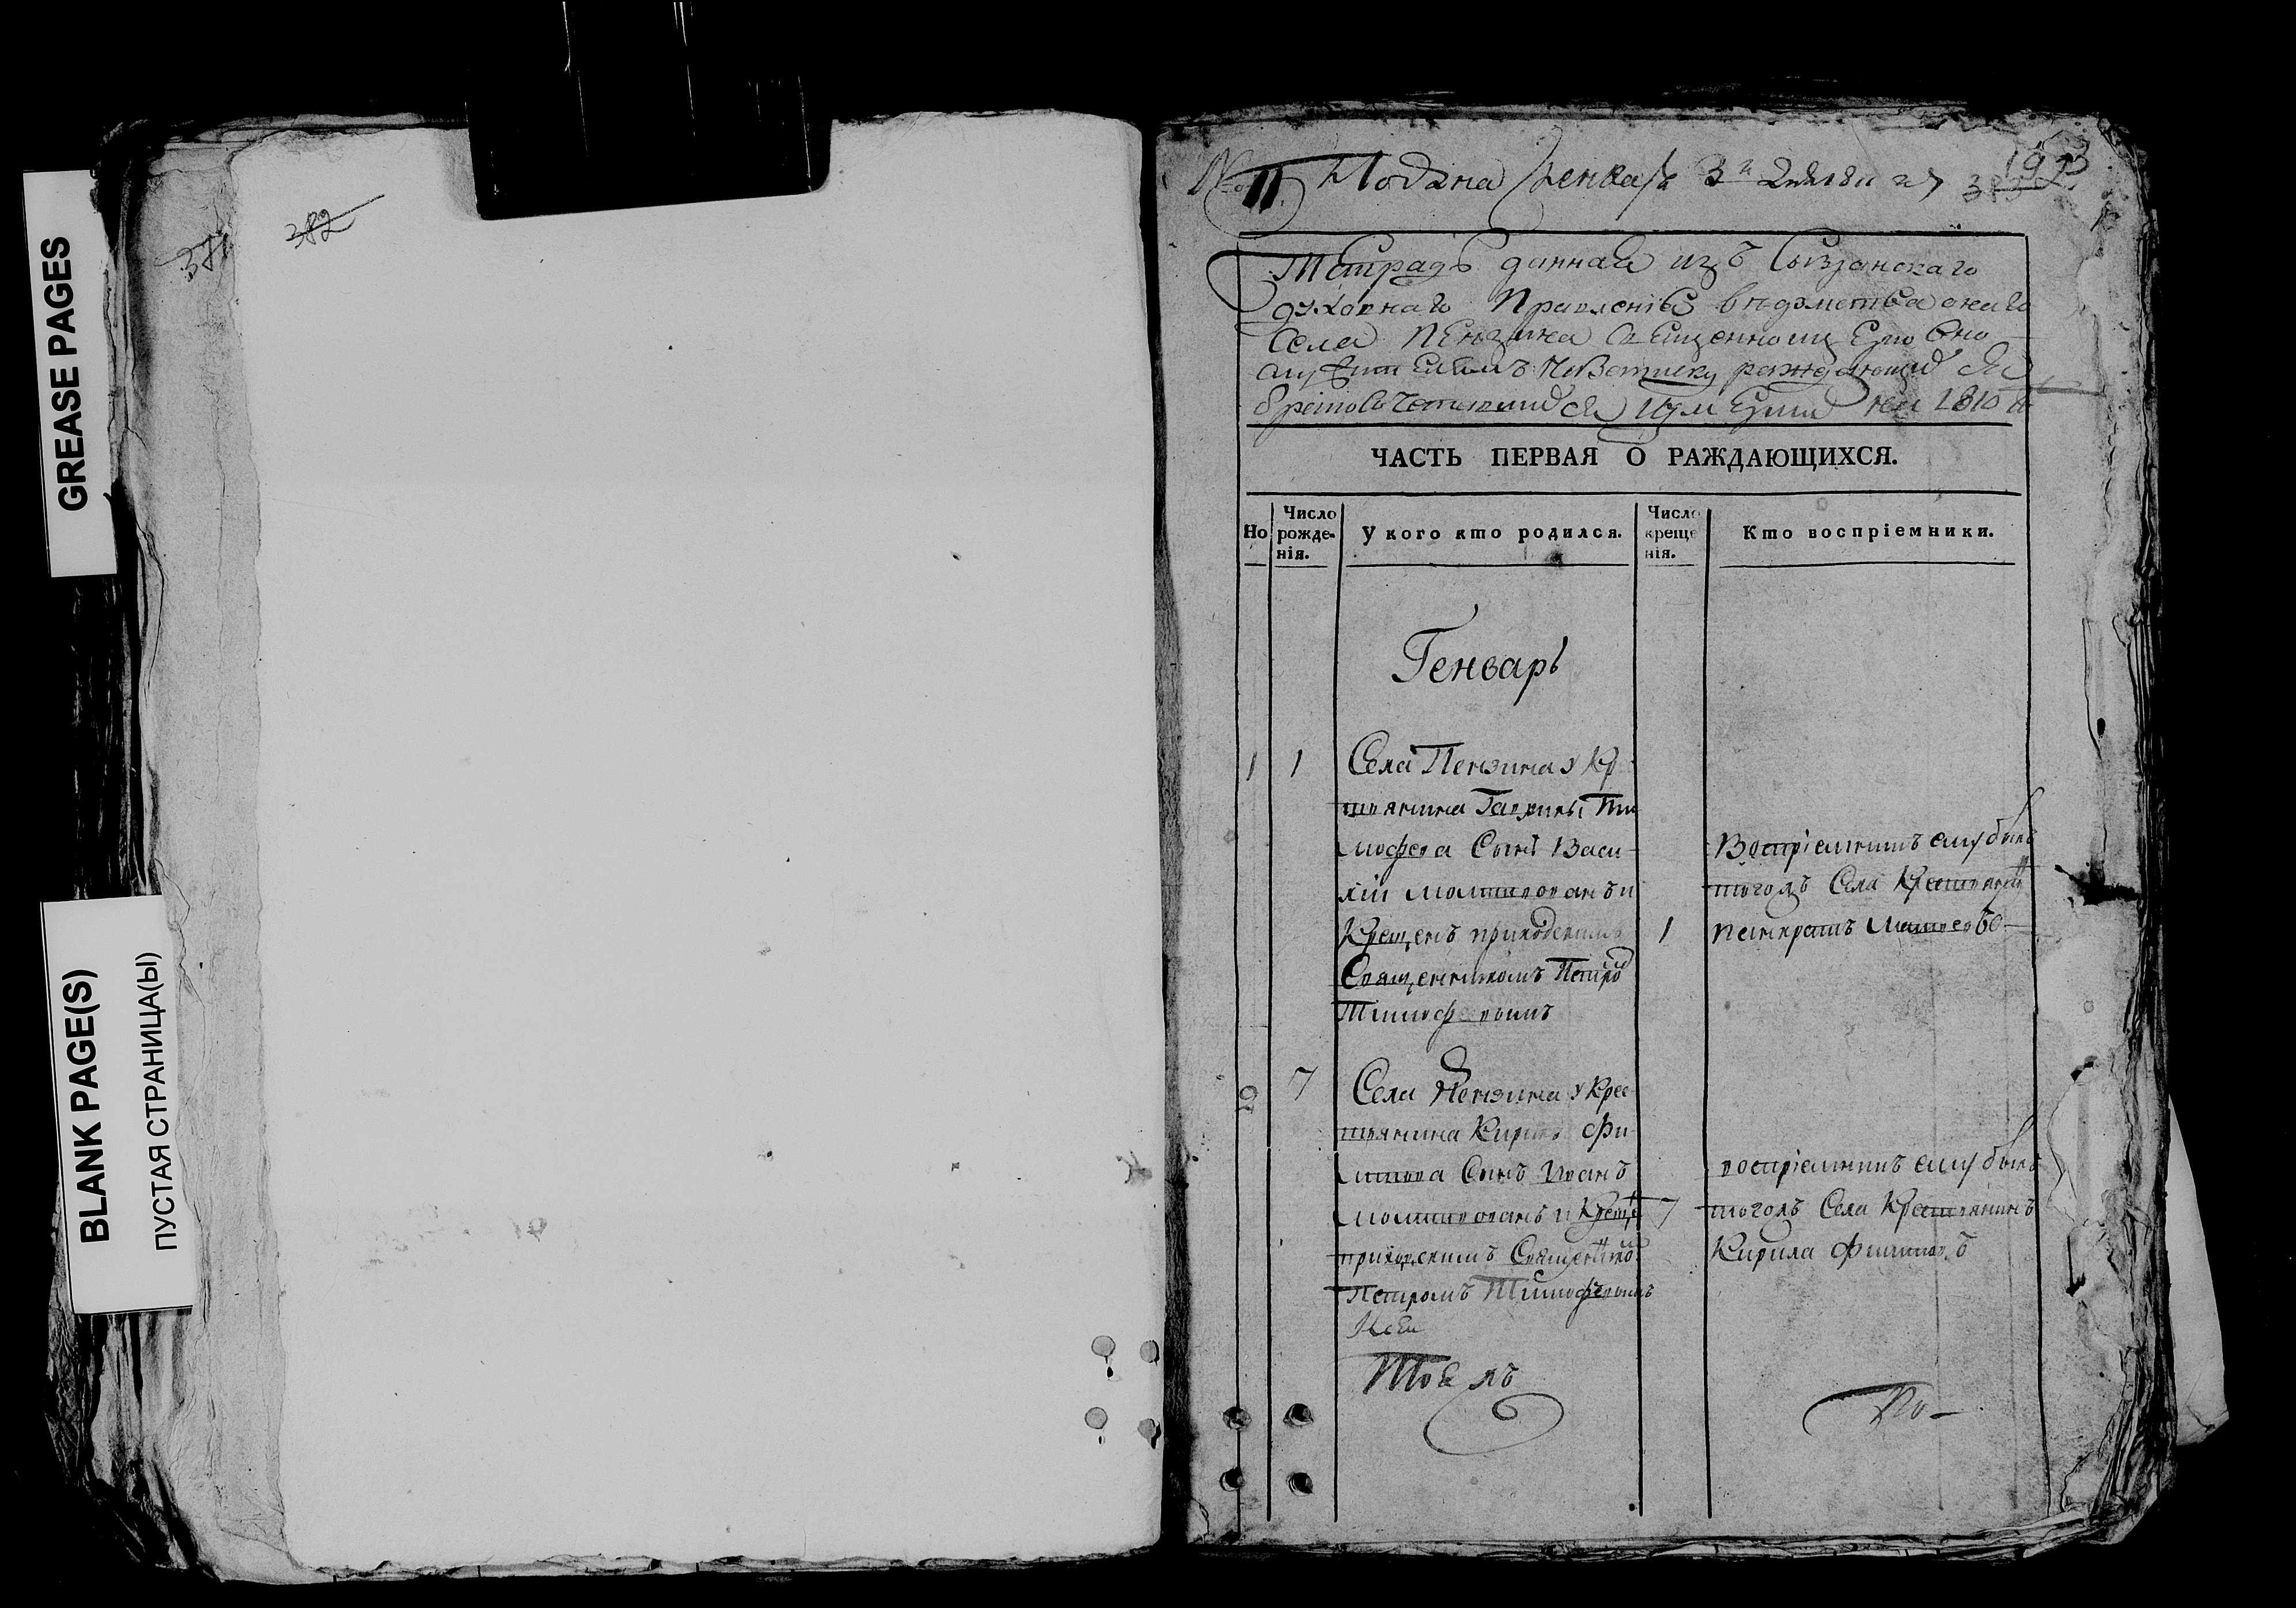 GREASE PAGES
BLANK PAGE(S)
ПУСТАЯ СТРАНИЦА(Ы)
381
382
№ 11. Подана Генваря 3 дня 1811 383
Тетрадь данная изъ Сызранскаго
духовнаго Правленія ведомства онаго
Села Пензина Священно
раждающихся
бретовочетавшихся Иумершихъ на 1810
ЧАСТЬ ПЕРВАЯ О РАЖДАЮЩИХСЯ.
Но
Число рожде-нія.
У кого кто родился.
Число креще нія.
Кто воспріемники.
Генварь
1 1 Села Пензина у Кр
стьянина Гаврилы Ти
мофеева Сынъ Васи-
лій молитвованъ и
Крещенъ приходскимъ
Священникомъ Петро
Тимоф евымъ
1
Воспріемникъ ему былъ
тогожъ Села Крестьянинъ
Панкратъ Матвеевъ
2 7 Села Пензина у Крес
тьянина Кирила Фи
липова Сынъ Иванъ
молитвованъ и Креще
приходскимъ Священнико
Петромъ Тимофеевымъ
7
воспріемникъ ему былъ
тогожъ Села Крестьянинъ
Кирила Филиповъ
По-